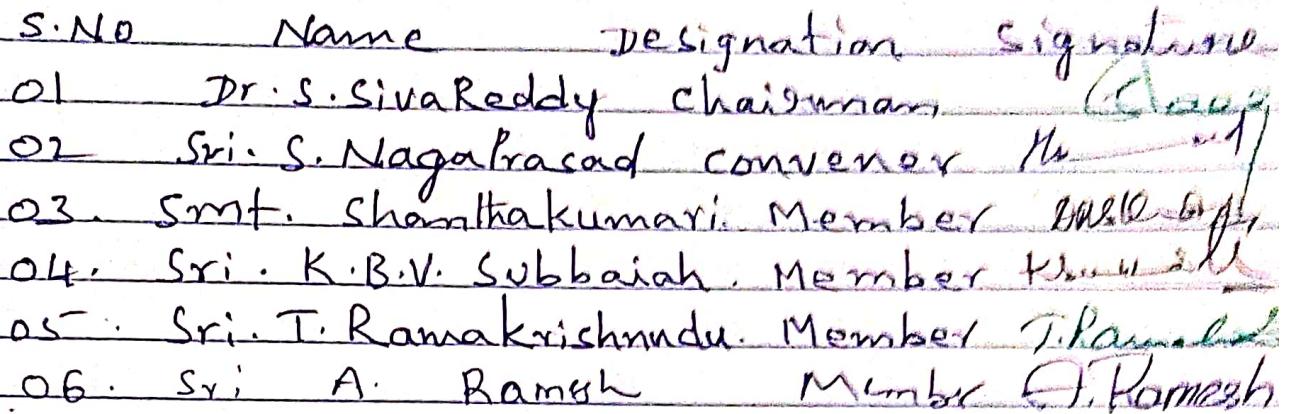 S.NO Name Designation Signature
01 Dr. S. SivaReddy Chairman
02 Sri. S. NagaPrasad convenor
03. Smt. Shanthakumari. Member
04. Sri. K.B.V. Subbaiah. Member
05. Sri. T. Ramakrishnudu. Member
06. Sri A. Ramesh Member A. Ramesh